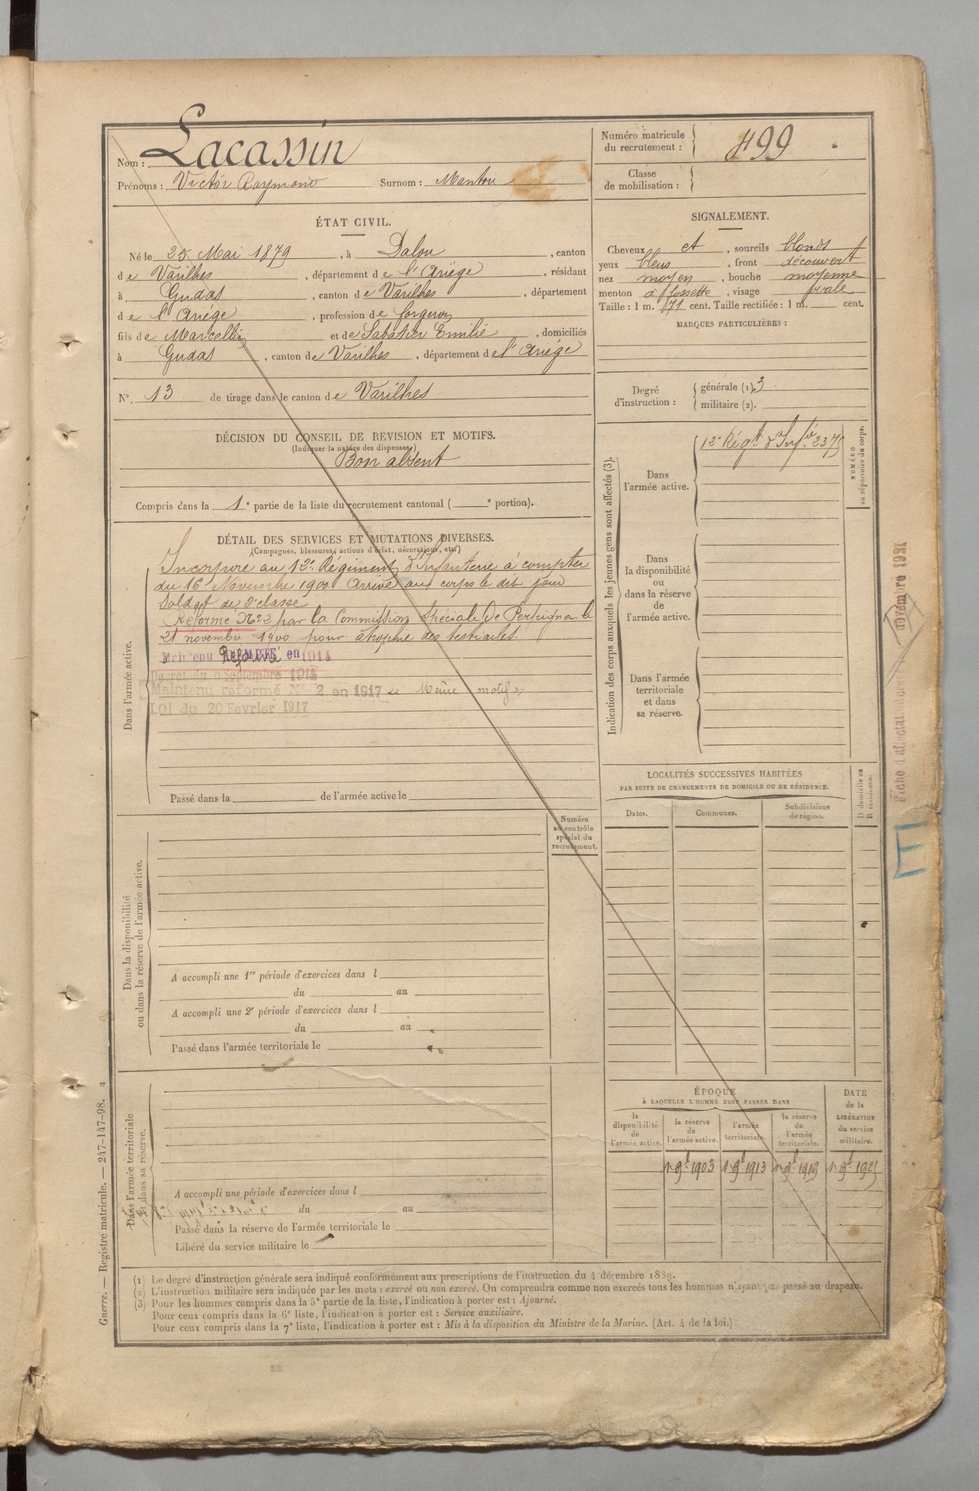 Nom : Lacassin
Prénoms : Victor Raymond Surnom : Mantou
Numéro matricule du recrutement : 499
Classe de mobilisation :
ÉTAT CIVIL.
Né le 25 Mai 1879, à Dalou, canton
de Varilhes, département de l'Ariège, résidant
à Gudas, canton de Varilhes, département
de l'Ariège, profession de forgeron
fils de Marcellin et de Sabatier Emilie, domiciliés
à Gudas, canton de Varilhes, département de l'Ariége
N° 13 de tirage dans le canton de Varilhes
SIGNALEMENT.
Cheveux et, sourcils blonds
yeux bleus, front découvert
nez moyen, bouche moyenne
menton à fossette, visage ovale
Taille : 1 m. 71 cent. Taille rectifiée : 1 m. cent.
MARQUES PARTICULIÈRES :
Degré d'instruction : générale (1). 3
militaire (2).
DÉCISION DU CONSEIL DE REVISION ET MOTIFS.
(Indiquer la nature des dispenses)
Bon absent
Compris dans la 1e partie de la liste du recrutement cantonal ( e portion).
DÉTAIL DES SERVICES ET MUTATIONS DIVERSES.
(Campagnes, blessures, actions d'éclat, décorations, etc.)
Dans l'armée active.
Incorporé au 12e Régiment d'Infanterie à compter
du 16 Novembre 1900 Arrivé aux corps le dit jour
Soldat de 2e classe
Réformé N° 2 par la Commission Spéciale de Perpignan le
21 novembre 1900 pour atrophie des testicules.
Maintenu Réformé en 1914
Décret du 9 Septembre 1914
Maintenu réformé N° 2 en 1917 Même motif
Loi du 20 Février 1917
Passé dans la de l'armée active le
Indication des corps auxquels les jeunes gens sont affectés (3).
Dans l'armée active.
12e Régt d'Infie 2375
NUMÉRO au répertoire du corps.
Dans la disponibilité ou dans la réserve de l'armée active.
Dans l'armée territoriale et dans sa réserve.
LOCALITÉS SUCCESSIVES HABITÉES
PAR SUITE DE CHANGEMENTS DE DOMICILE OU DE RÉSIDENCE.
Dates. Communes. Subdivisions de région. D. domicile ou R. résidence.
Numéro au contrôle spécial du recrutement.
Dans la disponibilité ou dans la réserve de l'armée active.
A accompli une 1re période d'exercices dans l
du au
A accompli une 2e période d'exercices dans l
du au
Passé dans l'armée territoriale le
Dans l'armée territoriale et dans sa réserve.
A accompli une période d'exercices dans l
du au
Passé dans la réserve de l'armée territoriale le
Libéré du service militaire le
ÉPOQUE
À LAQUELLE L'HOMME DOIT PASSER DANS
la disponibilité de l'armée active.
la réserve de l'armée active.
l'armée territoriale.
la réserve de l'armée territoriale.
DATE de la LIBÉRATION du service militaire.
1 9b 1903 1 9b 1913 1 9b 1919 1 9b 1925
Fiche d'affectation
novembre 1931
Guerre. — Registre matricule. — 247-147-98.
(1) Le degré d'instruction générale sera indiqué conformément aux prescriptions de l'instruction du 4 décembre 1889.
(2) L'instruction militaire sera indiquée par les mots : exercé ou non exercé. On comprendra comme non exercés tous les hommes n'ayant pas passé au drapeau.
(3) Pour les hommes compris dans la 5e partie de la liste, l'indication à porter est : Ajourné.
Pour ceux compris dans la 6e liste, l'indication à porter est : Service auxiliaire.
Pour ceux compris dans la 7e liste, l'indication à porter est : Mis à la disposition du Ministre de la Marine. (Art. 4 de la loi.)